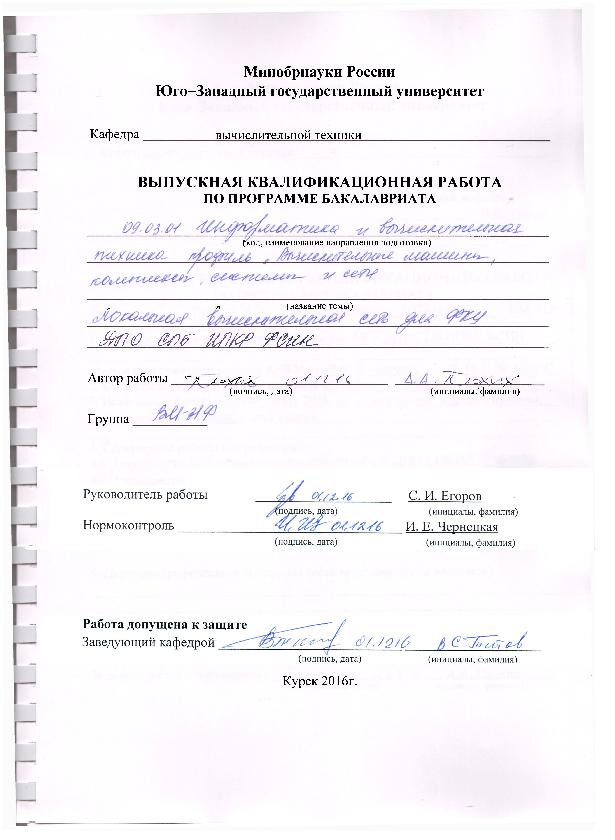 Минобрнауки России
Юго–Западный государственный университет
Кафедра вычислительной техники
ВЫПУСКНАЯ КВАЛИФИКАЦИОННАЯ РАБОТА
ПО ПРОГРАММЕ БАКАЛАВРИАТА
09.03.01 Информатика и вычислительная
(код, наименование направления подготовки)
техника профиль "Вычислительные машины,
комплексы, системы и сети
(название темы)
Локальная вычислительная сеть для ФКУ
ДПО СПб ИПКР ФСИН
Автор работы 01.12.16
(подпись, дата) (инициалы, фамилия)
Группа
Руководитель работы 01.12.16 С. И. Егоров
(подпись, дата) (инициалы, фамилия)
Нормоконтроль 01.12.16 И. Е. Чернецкая
(подпись, дата) (инициалы, фамилия)
Работа допущена к защите
Заведующий кафедрой 01.12.16 В С Титов
(подпись, дата) (инициалы, фамилия)
Курск 2016г.